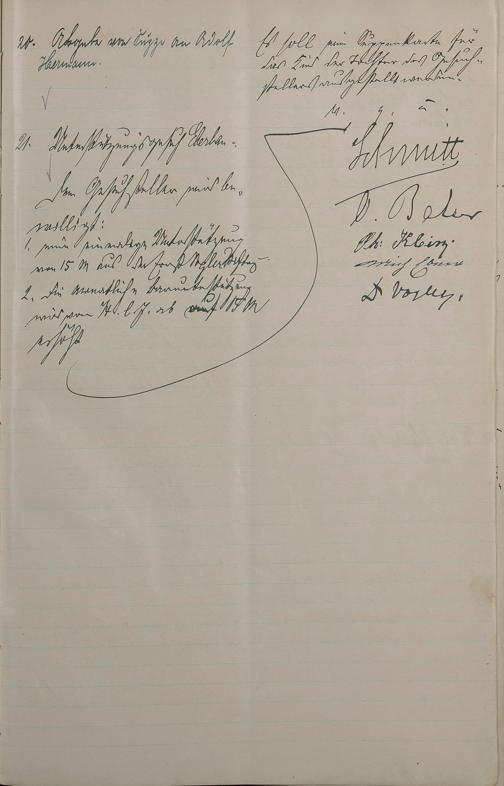 20. Abgabe von Suppe an Adolf
Hermann.
Es soll eine Suppenkarte für
das Kind der Tochter des Gesuch-
stellers ausgestellt werden.
21. Unterstützungsgesuch
Dem Gesuchsteller wird be-
willigt:
1. eine einmalige Unterstützung
von 15 M aus der
2. die monatliche Barunterstützung
wird von ab auf 15 M
erhöht
v. g. u.
Schmitt
D. Beker
Ph. Klein.